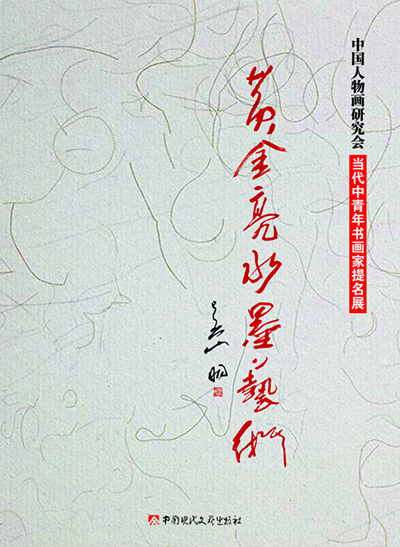 中国人物画研究会
当代中青年书画家提名展
黄金亮水墨艺术
吴山明
中国现代文艺出版社